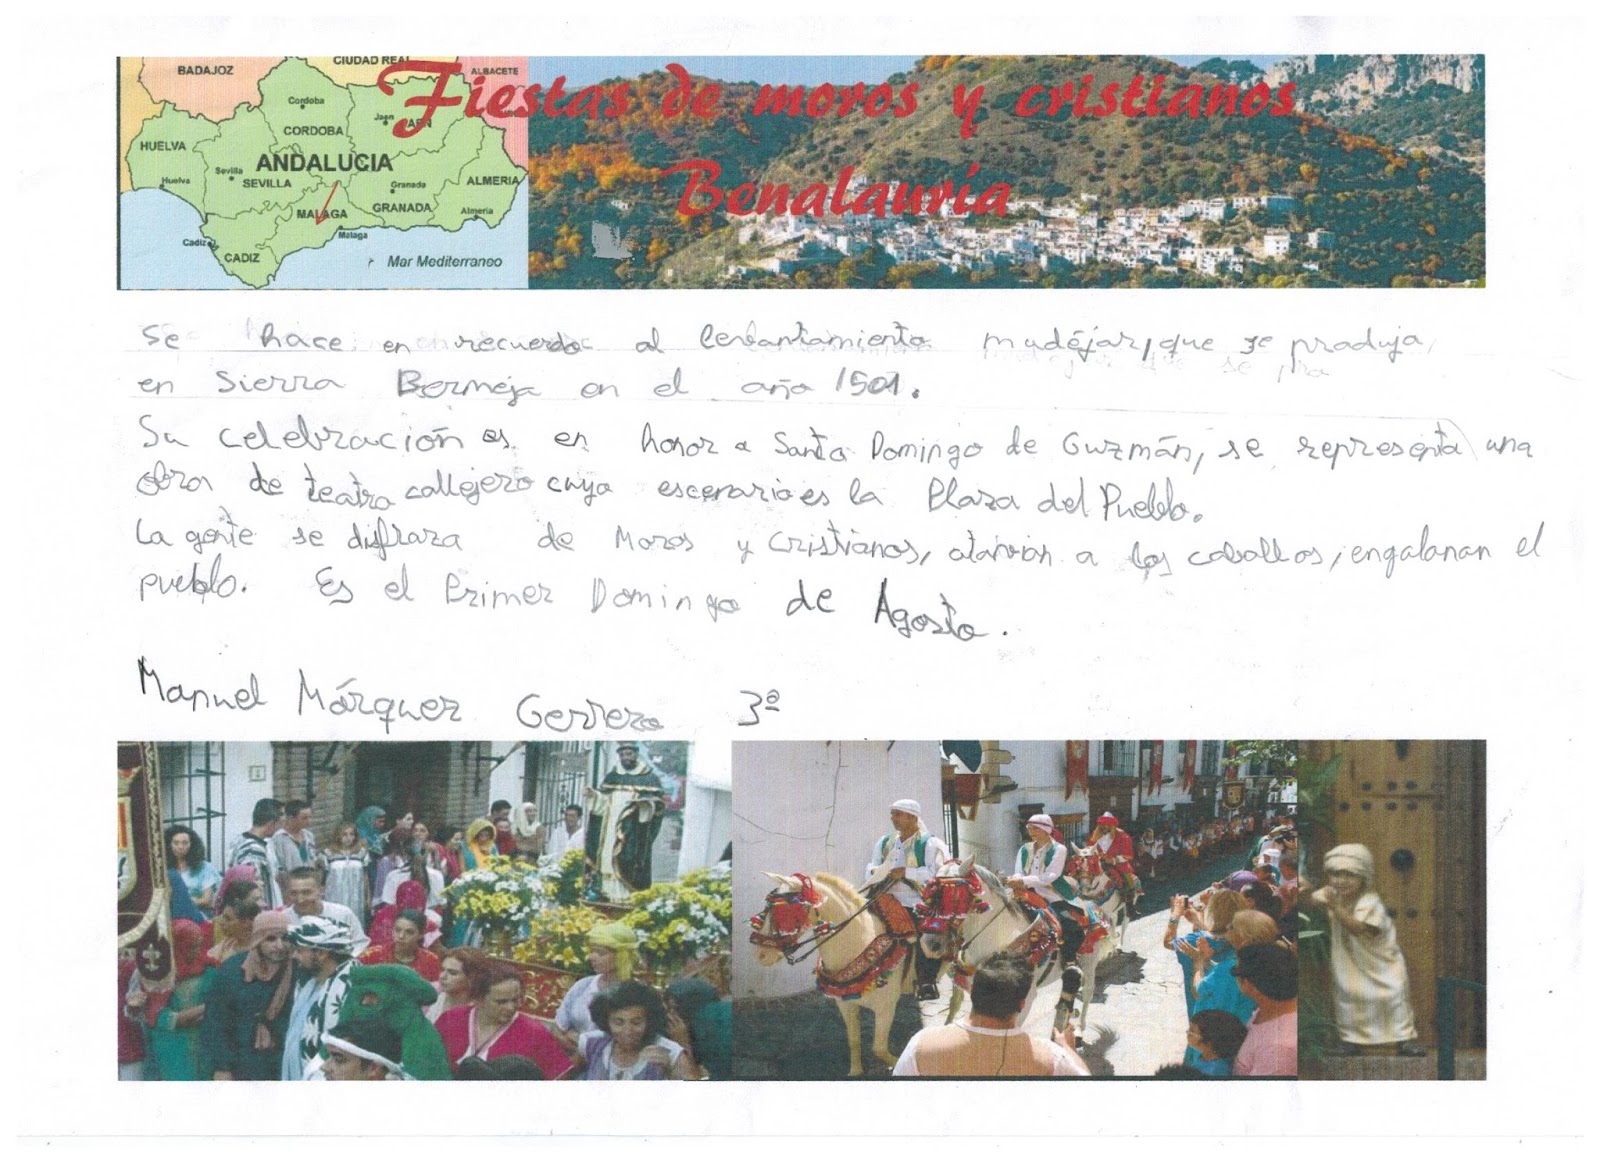 BADAJOZ
CIUDAD REAL
ALBACETE
Cordoba
CORDOBA
Jaen
JAEN
HUELVA
Huelva
Sevilla
SEVILLA
ANDALUCIA
Granada
GRANADA
ALMERIA
Almeria
MALAGA
Malaga
Cadiz
CADIZ
Mar Mediterraneo
Fiestas de moros y cristianos
Benalauría
Se hace en recuerdo al levantamiento mudéjar, que se produjo
en Sierra Bermeja en el año 1501.
Su celebración es en honor a Santo Domingo de Guzmán, se representa una
obra de teatro callejero cuyo escenario es la Plaza del Pueblo.
La gente se disfraza de Moros y Cristianos, atavian a los caballos, engalanan el
pueblo. Es el Primer Domingo de Agosto.
Manuel Márquez Gerrero 3ª